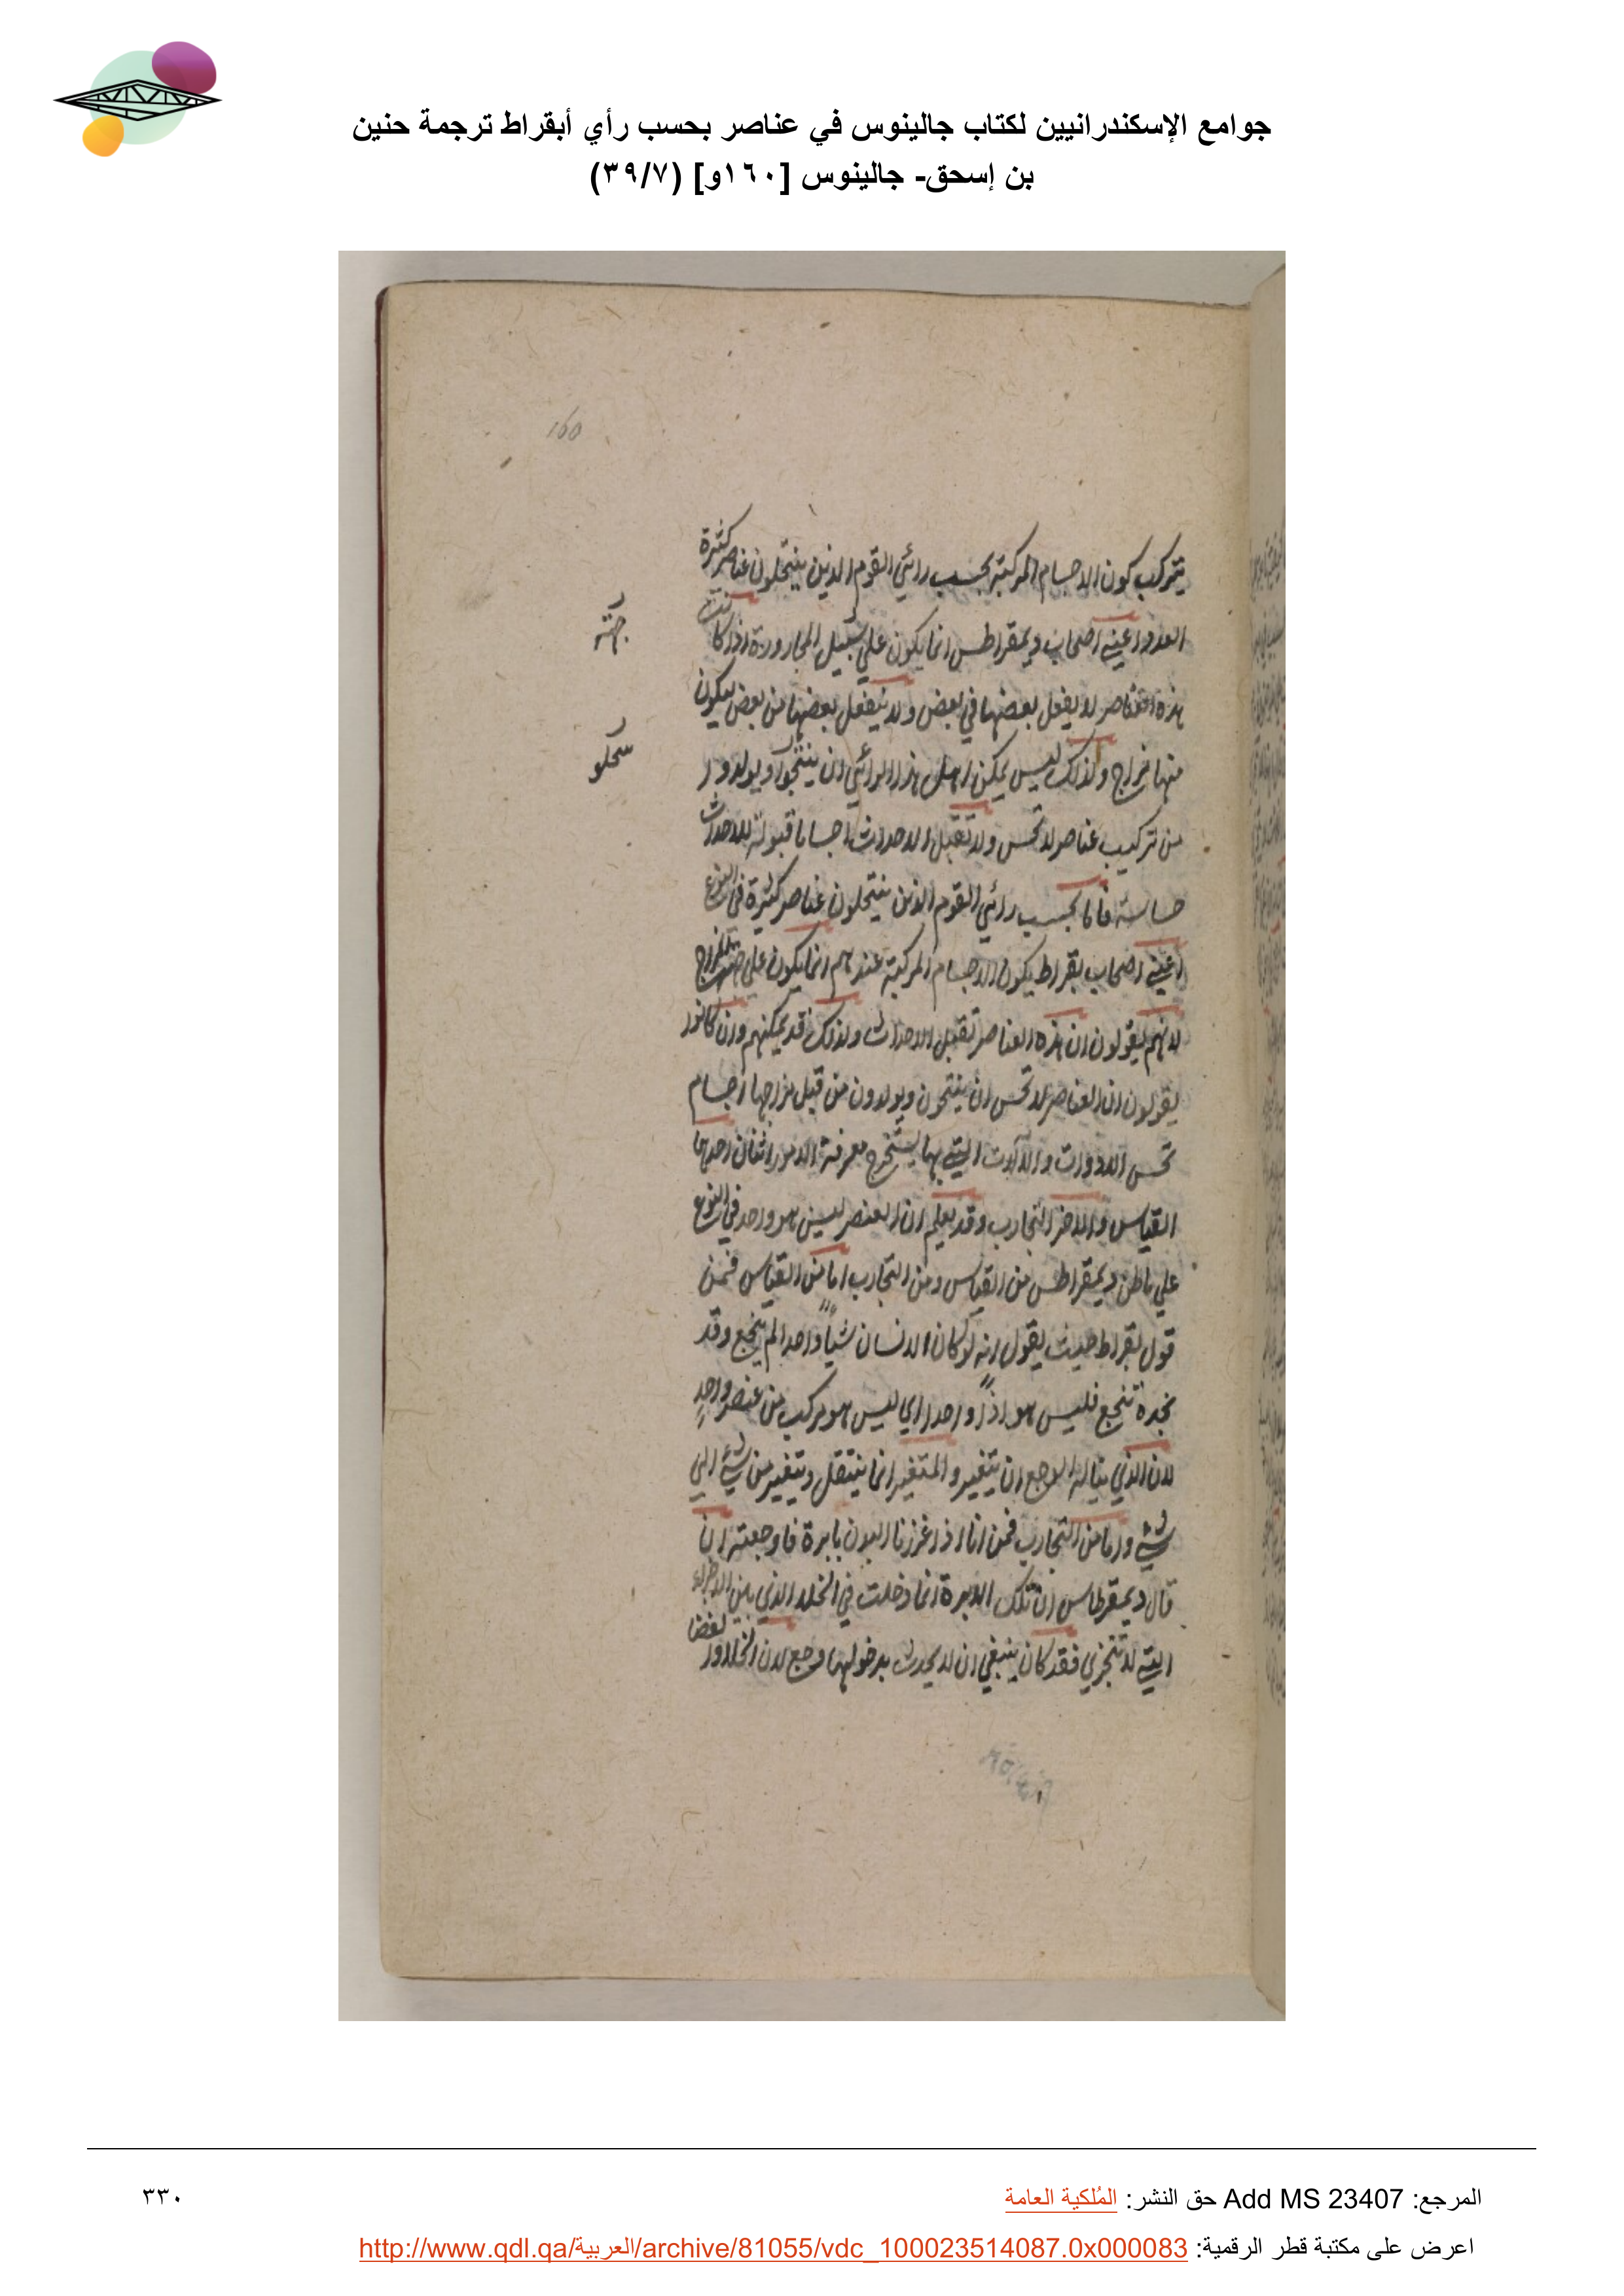 جوامع الإسكندرانيين لكتاب جالينوس في عناصر بحسب رأي أبقراط ترجمة حنين
بن إسحق- جالينوس [١٦٠و] (٣٩/٧)
160
يتركب كون الاجسام المركبة بحسب رائي القوم الذين ينتحلون عناصر كثيرة
العدد اعني اصحاب ديمقراطس انما يكون علي سبيل المجاورة اذ كانت
هذه العناصر لا يفعل بعضها في بعض ولا ينفعل بعضها من بعض فيكون
منها مزاج ولذلك ليس يمكن اهل هذا الرائي ان ينتجوا ويولدوا
من تركيب عناصر لا تحس ولا تقبل الاحداث اجساما قبولة للاحداث
حساسة فاما بحسب رائي القوم الذين ينتحلون عناصر كثيرة في النوع
اعني اصحاب بقراط يكون الاجسام المركبة عندهم انما يكون علي جهة المزاج
لانهم يقولون ان هذه العناصر تقبل الاحداث ولذلك قد يمكنهم وان كانوا
يقولون ان العناصر لا تحس ان ينتجون ويولدون من قبل مزاجها اجسام
تحس الادوات والآلات التي بها يستخرج معرفة الامور اثنان احدهما
القياس والاخر التجارب وقد يعلم ان العنصر ليس هو واحد في النوع
علي ماظن ديمقراطس من القياس ومن التجارب اما من القياس فمن
قول بقراط حيث يقول انه لو كان الانسان شيأ واحدا لم ينجع وقد
نجده تنجع فليس هو اذاً واحدا اي ليس هو مركب من عنصر واحدٍ
لان الذي يناله الوجع ان يتغير والمتغير انما ينتقل ويتغير من شئ الي
شئ واما من التجارب فمن انا اذا غرزنا البدن بابرة فاوجعته ان
قال ديمقرطاس ان تلك الابرة انما دخلت في الخلد الذي بين الاجزاء
التي لا تتجزي فقد كان ينبغي ان لا يحدث بدخولها وجع لان الخلا
جهته
المرجع: Add MS 23407 حق النشر: المُلكية العامة
٣٣٠
اعرض على مكتبة قطر الرقمية: http://www.qdl.qa/العربية/archive/81055/vdc_100023514087.0x000083